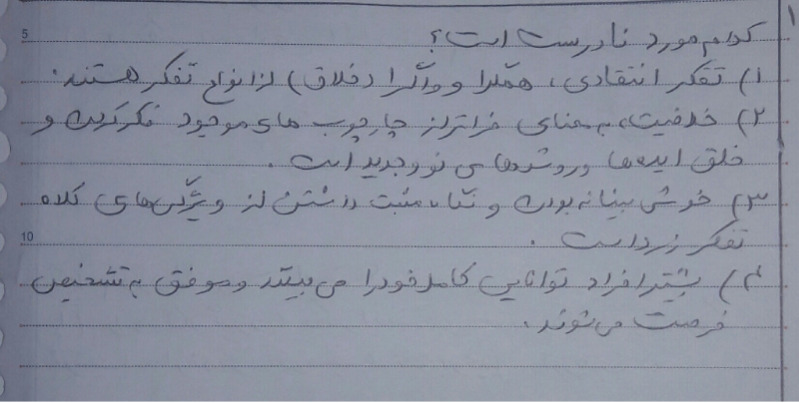 ۱
کدام مورد نادرست است؟
۱) تفکر انتقادی، همگرا و واگرا (خلاق) از انواع تفکر هستند.
۲) خلاقیت، به معنای فراتر از چارچوب های موجود فکر کردن و
خلق ایده‌ها و روش‌های نو و جدید است.
۳) خوش بینانه بودن و نگاه مثبت داشتن از ویژگی‌های کلاه
تفکر زرد است.
۴) بیشتر افراد توانایی کامل خود را می‌بینند و موفق به تشخیص
فرصت می‌شوند.
5
10